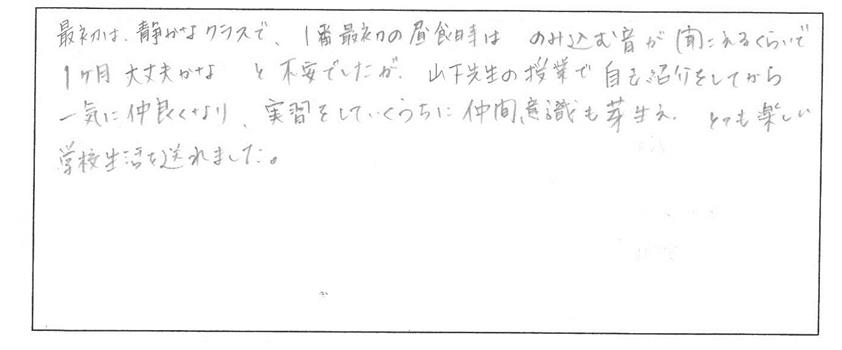 最初は、静かなクラスで、1番最初の昼食時は のみ込む音が聞こえるくらいで
1ヶ月 大丈夫かな と 不安でしたが、山下先生の授業で 自己紹介をしてから
一気に仲良くなり、実習をしていくうちに 仲間意識も芽生え、とても楽しい
学校生活を送れました。